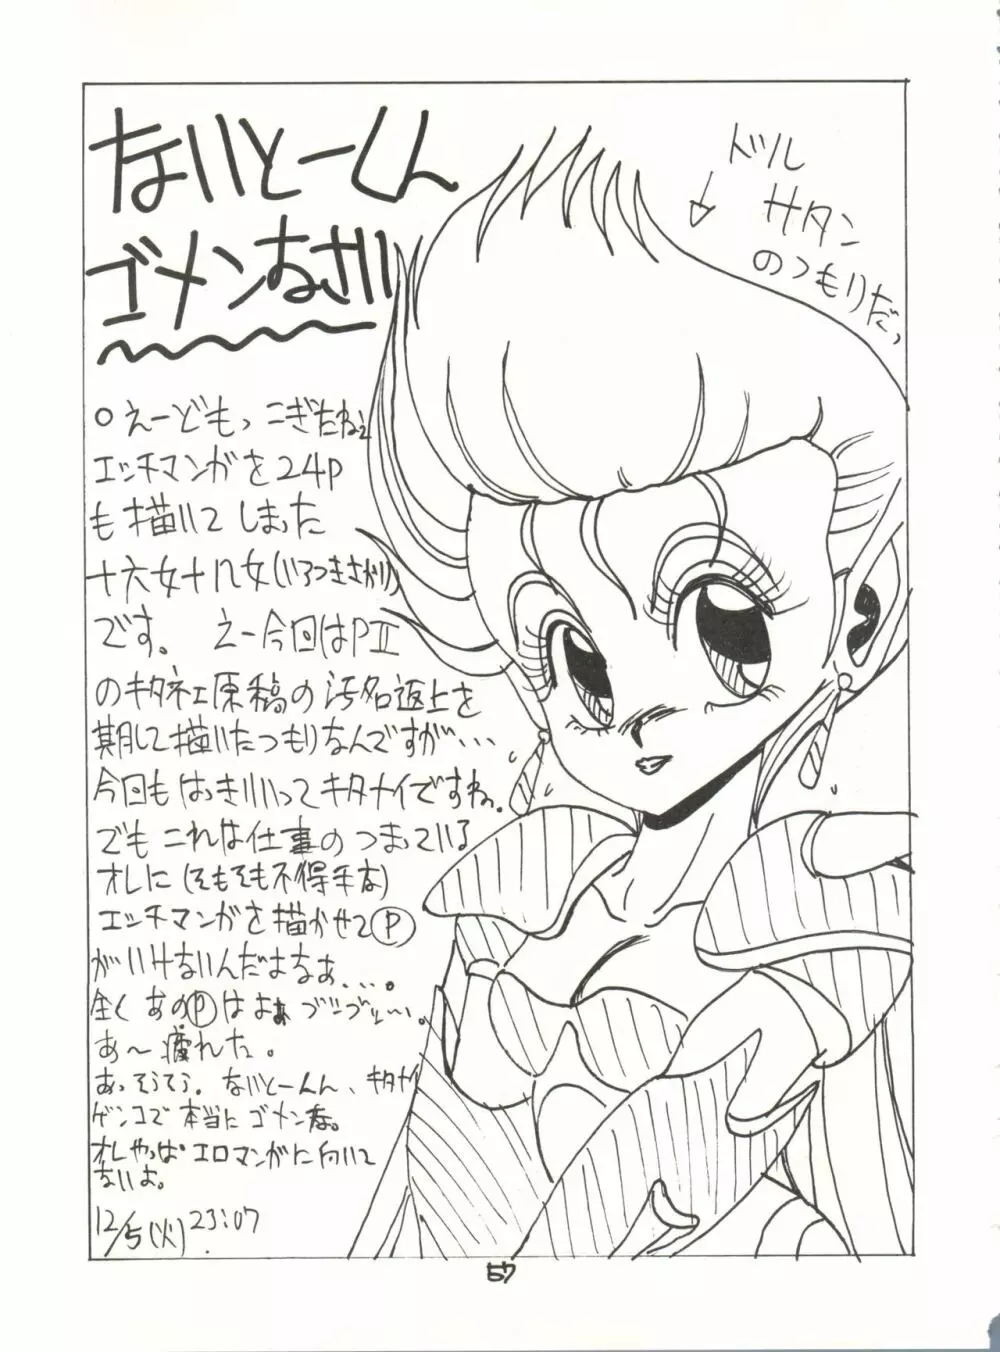 ないとーくん
ゴメンなさい
ドツル
サタン
のつもりだっ
○えーどもっ こぎたねェ
エッチマンガを24P
も描いてしまった
十六女十八女(いろつきさがり)
です。 えー今回はPⅡ
のキタネェ原稿の汚名返上を
期して描いたつもりなんですが…
今回もはっきりいってキタナイですね。
でもこれは仕事のつまっている
オレに(そもそも不得手な)
エッチマンガを描かせるⓅ
がいけないんだよなぁ…。
全くあのⓅはよぉ ブツブツ…。
あ〜疲れた。
あっそうそう。ないとーくん、キタナイ
ゲンコで本当にゴメンな。
オレやっぱエロマンガに向いて
ないよ。
12/5(火) 23:07
57